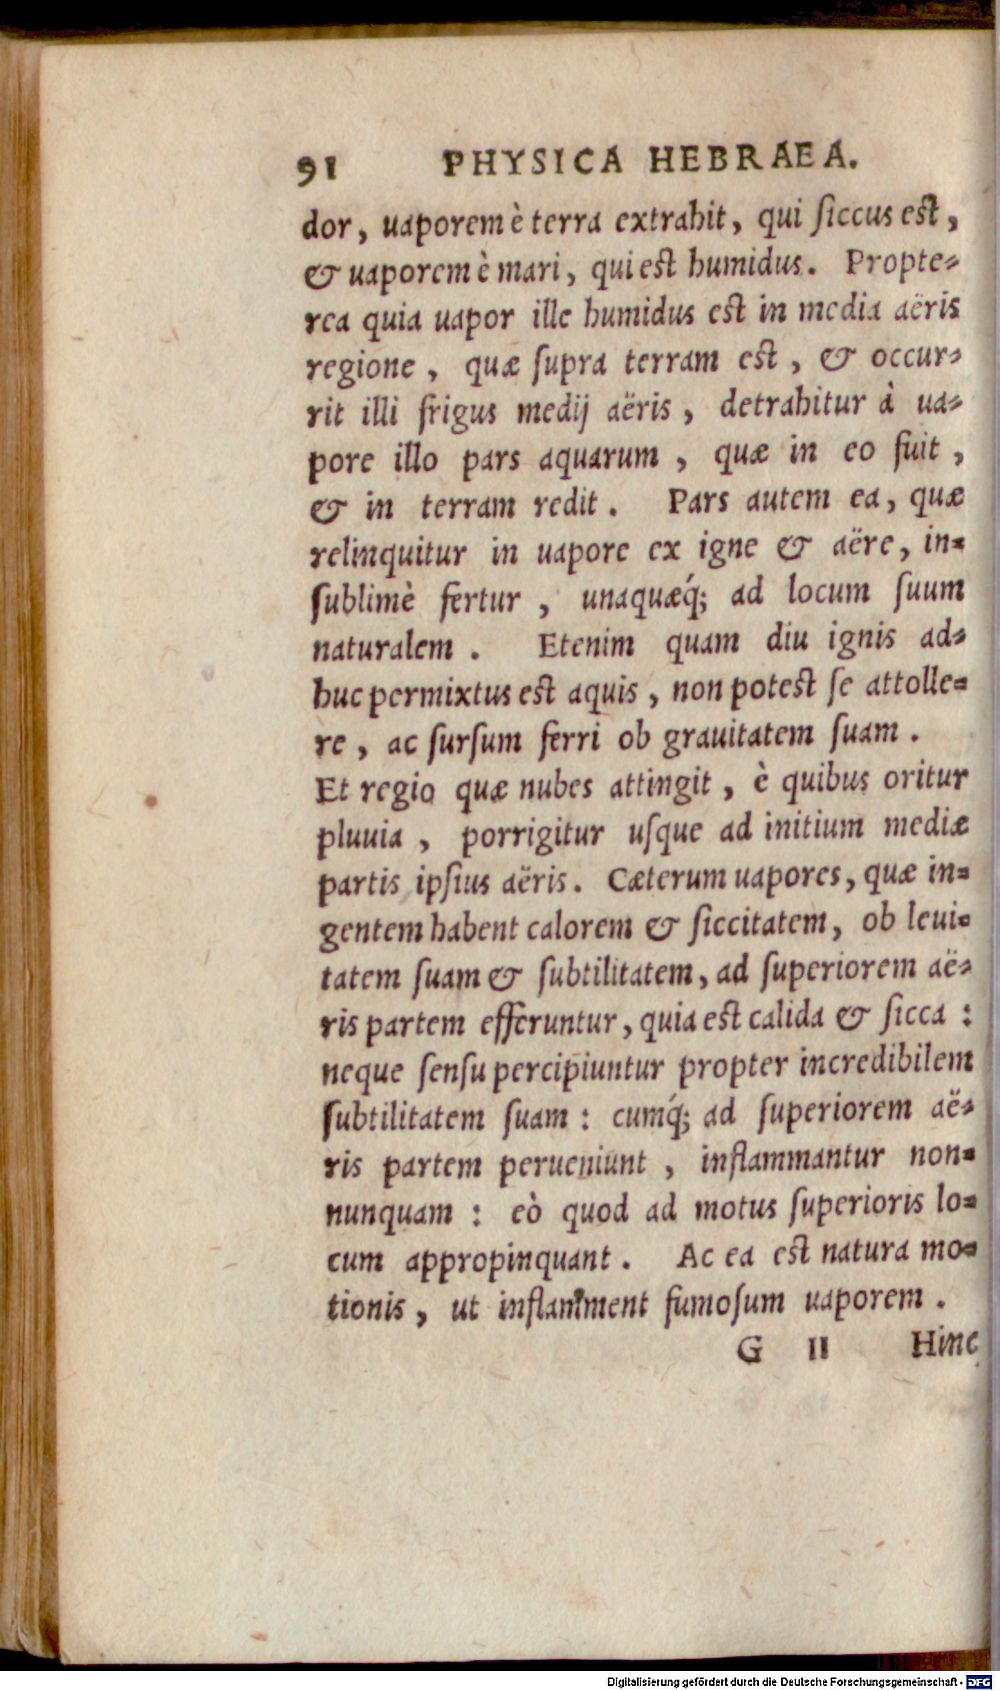 91 PHYSICA HEBRAEA.
dor, uaporem è terra extrahit, qui ſiccus est,
& uaporem è mari, qui est humidus. Propte-
rea quia uapor ille humidus est in media aëris
regione, quæ ſupra terram est, & occur-
rit illi frigus medij aëris, detrahitur à ua-
pore illo pars aquarum, quæ in eo fuit,
& in terram redit. Pars autem ea, quæ
relinquitur in uapore ex igne & aëre, in-
ſublimè fertur, unaquæq́; ad locum ſuum
naturalem. Etenim quam diu ignis ad-
huc permixtus est aquis, non potest ſe attolle-
re, ac ſurſum ferri ob grauitatem ſuam.
Et regio quæ nubes attingit, è quibus oritur
pluuia, porrigitur uſque ad initium mediæ
partis ipſius aëris. Cæterum uapores, quæ in-
gentem habent calorem & ſiccitatem, ob leui-
tatem ſuam & ſubtilitatem, ad ſuperiorem aë-
ris partem efferuntur, quia est calida & ſicca:
neque ſenſu percipiuntur propter incredibilem
ſubtilitatem ſuam: cumq́; ad ſuperiorem aë-
ris partem perueniunt, inflammantur non-
nunquam: eò quod ad motus ſuperioris lo-
cum appropinquant. Ac ea est natura mo-
tionis, ut inflamment fumoſum uaporem.
G II Hinc
Digitalisierung gefördert durch die Deutsche Forschungsgemeinschaft - DFG